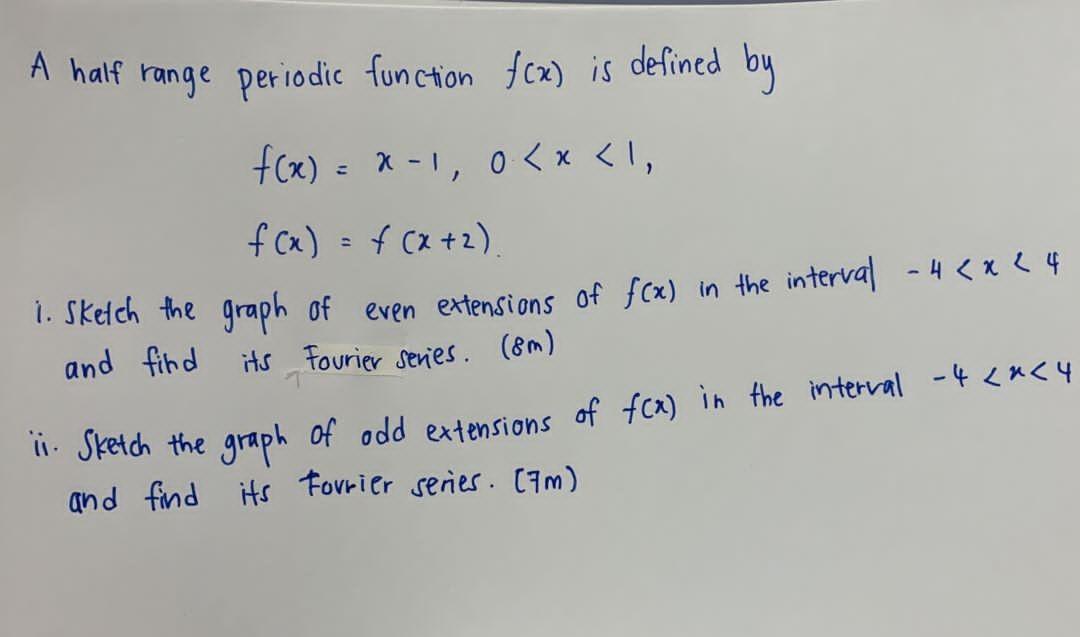 A half range periodic function f(x) is defined by
f(x) = x - 1, 0 < x < 1,
f(x) = f(x+2).
i. Sketch the graph of even extensions of f(x) in the interval -4 < x < 4
and find its Fourier series. (8m)
ii. Sketch the graph of odd extensions of f(x) in the interval -4 < x < 4
and find its Fourier series. [7m)